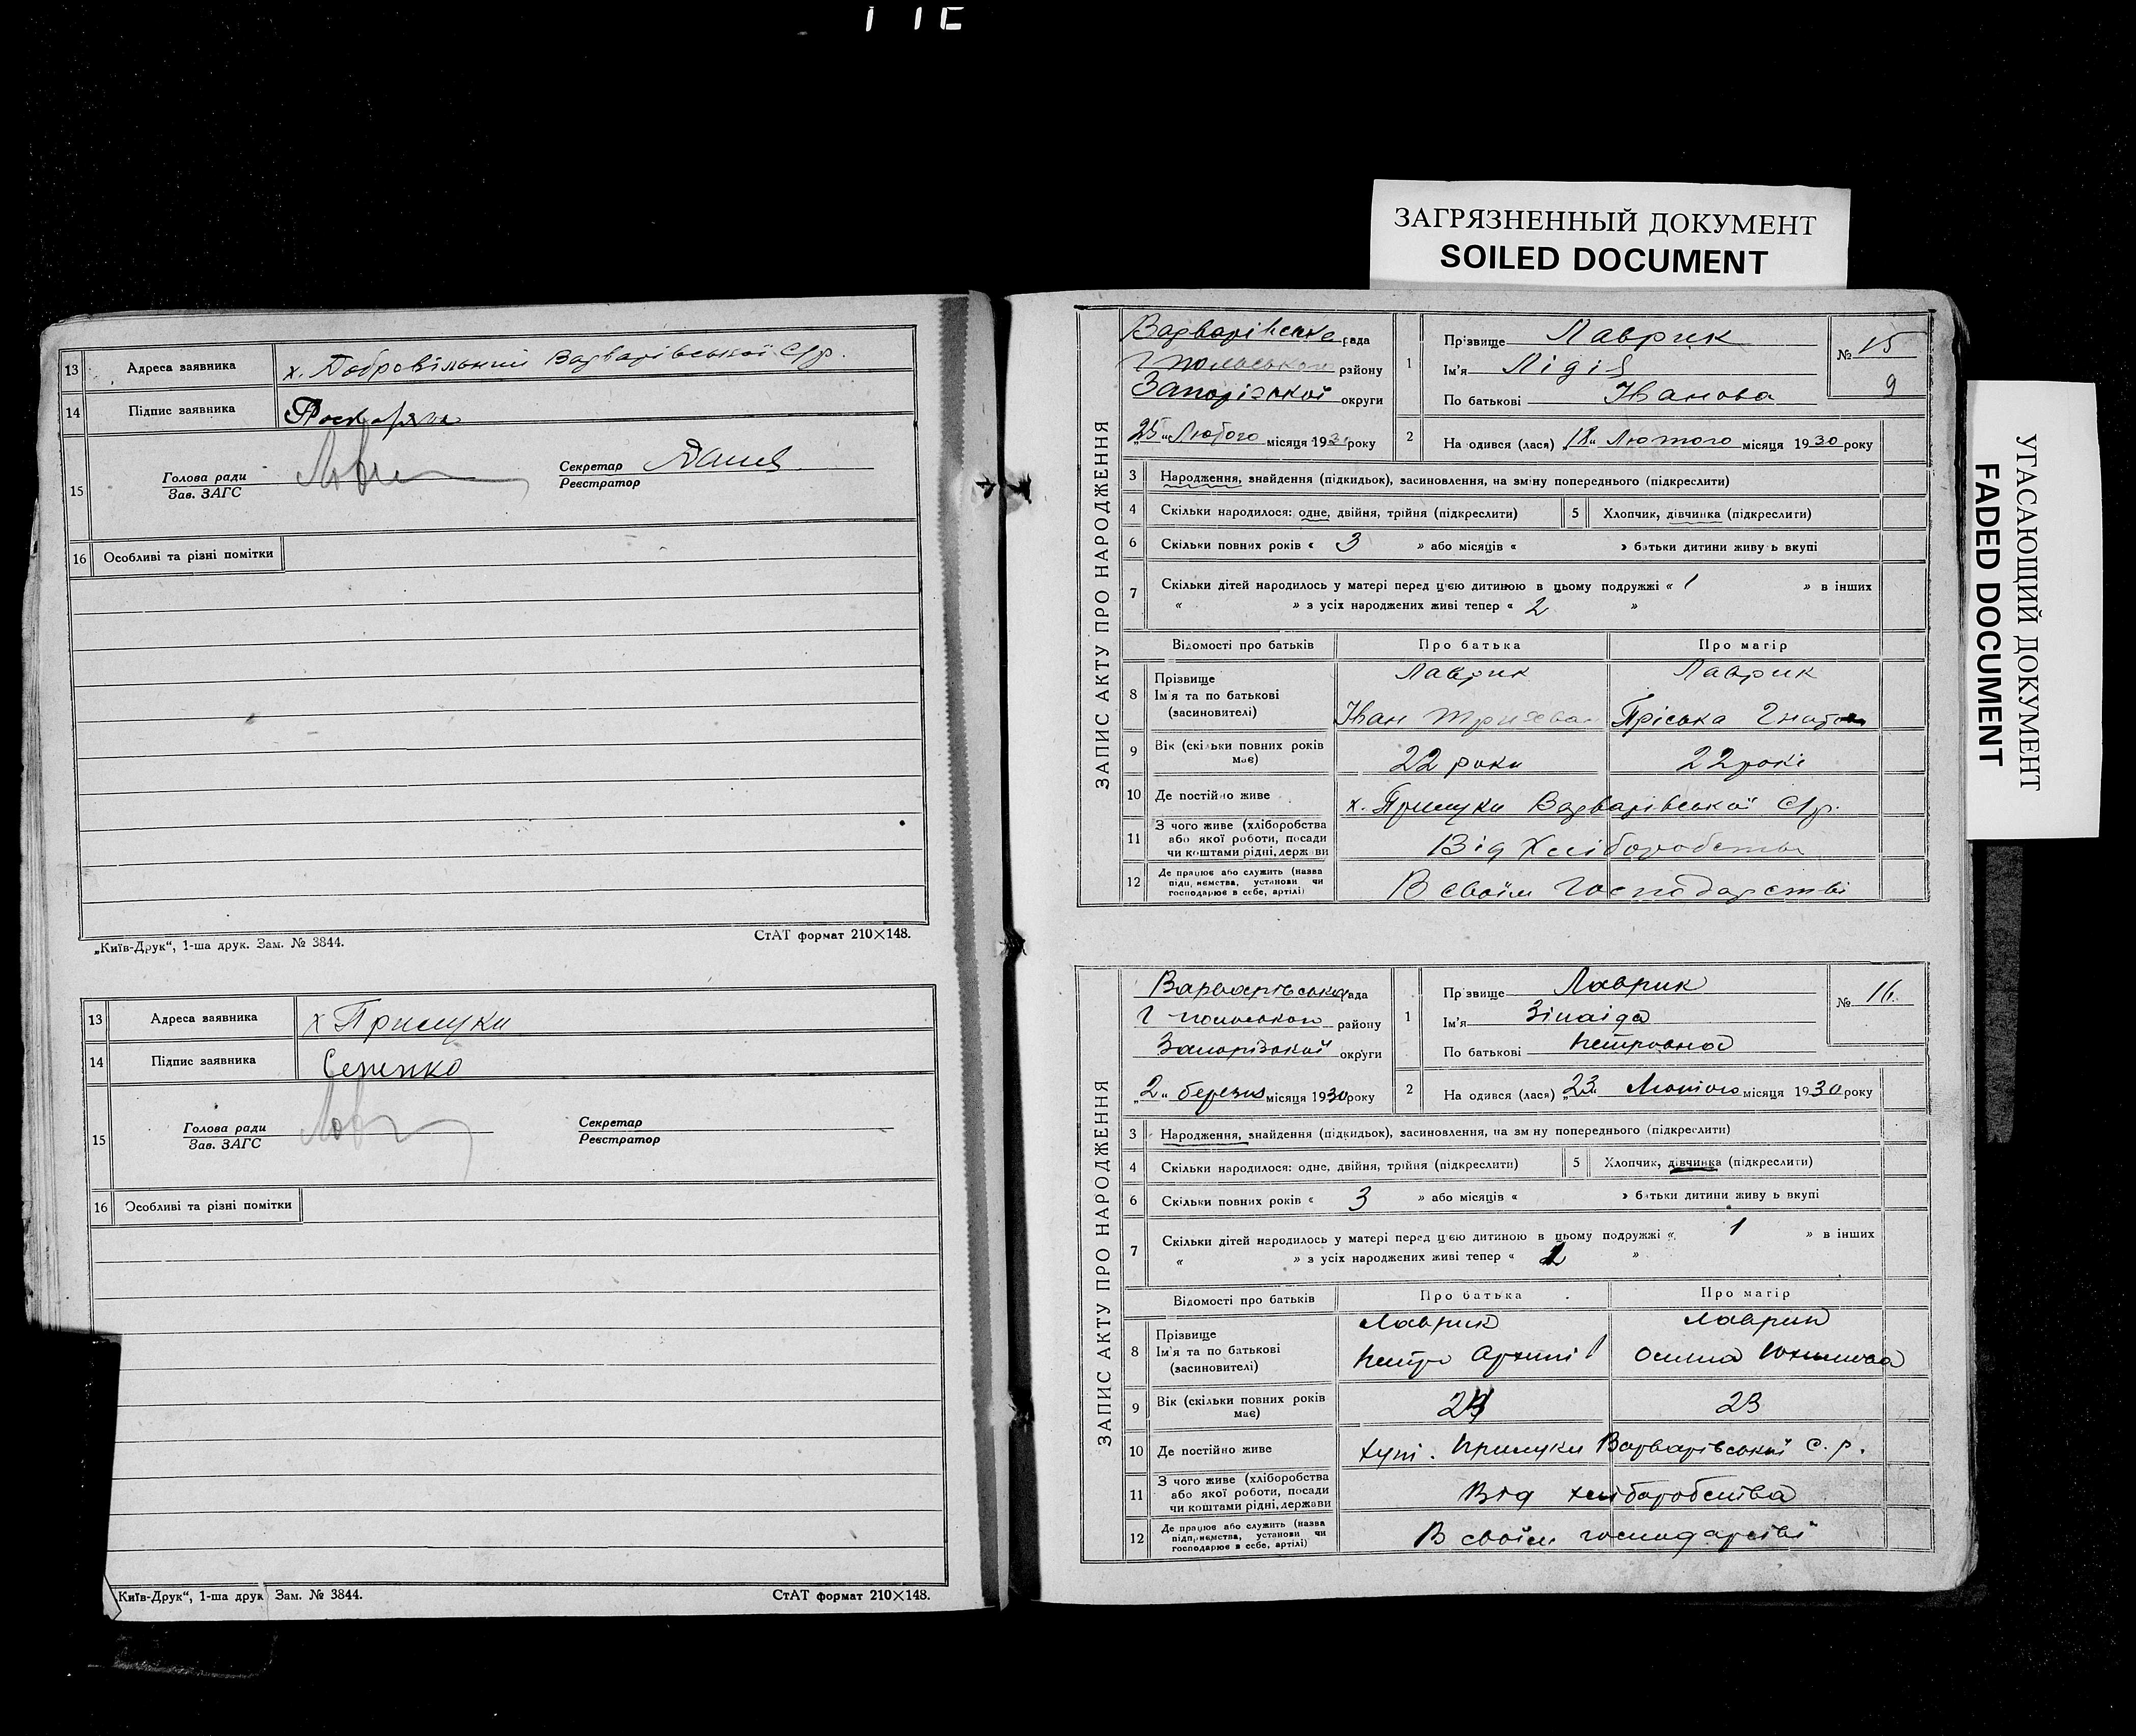 ЗАГРЯЗНЕННЫЙ ДОКУМЕНТ
SOILED DOCUMENT
УГАСАЮЩИЙ ДОКУМЕНТ
FADED DOCUMENT
13 Адреса заявника х. Добровільний Варварівської С/р.
14 Підпис заявника
15 Голова ради Секретар
Зав. ЗАГС Реєстратор
16 Особливі та різні помітки
„Київ-Друк“, 1-ша друк. Зам. № 3844. СтАТ формат 210×148.
13 Адреса заявника х Прилуки
14 Підпис заявника
15 Голова ради Секретар
Зав. ЗАГС Реєстратор
16 Особливі та різні помітки
Київ-Друк“, 1-ша друк Зам. № 3844. СтАТ формат 210×148.
ЗАПИС АКТУ ПРО НАРОДЖЕННЯ
Варварівська рада
району
Запорізької округи
„25„ Лютого місяця 1930 року
1 Прізвище Лаврик № 15
Ім'я Лідія 9
По батькові Іванова
2 На одився (лася) „18„ Лютого місяця 1930 року
3 Народження, знайдення (підкидьок), засиновлення, на зміну попереднього (підкреслити)
4 Скільки народилося: одне, двійня, трійня (підкреслити) 5 Хлопчик, дівчинка (підкреслити)
6 Скільки повних років « 3 » або місяців « » батьки дитини живу ь вкупі
7 Скільки дітей народилось у матері перед цією дитиною в цьому подружжі « 1 » в інших
« » з усіх народжених живі тепер « 2 »
Відомості про батьків Про батька Про матір
8 Прізвище Лаврик Лаврик
Ім'я та по батькові Іван Пріська
(засиновителі)
9 Вік (скільки повних років має) 22 роки 22 рокі
10 Де постійно живе х. Прилуки Варварівської С/р.
11 З чого живе (хліборобства
або якої роботи, посади Від Хліборобства
чи коштами рідні, держави
12 Де працює або служить (назва
підприємства, установи чи В своїм Господарстві
господарює в себе, артілі)
ЗАПИС АКТУ ПРО НАРОДЖЕННЯ
Варварівська рада
району
Запорізької округи
„2„ березня місяця 1930 року
1 Прізвище Лаврик № 16.
Ім'я Зінаіда
По батькові Петровна
2 На одився (лася) „23„ Лютого місяця 1930 року
3 Народження, знайдення (підкидьок), засиновлення, на зм ну попереднього (підкреслити)
4 Скільки народилося: одне, двійня, трійня (підкреслити) 5 Хлопчик, дівчинка (підкреслити)
6 Скільки повних років « 3 » або місяців « » батьки дитини живу ь вкупі
7 Скільки дітей народилось у матері перед цією дитиною в цьому подружжі « 1 » в інших
« » з усіх народжених живі тепер « 2 »
Відомості про батьків Про батька Про матір
8 Прізвище Лаврик Лаврик
Ім'я та по батькові Петро
(засиновителі)
9 Вік (скільки повних років має) 23
10 Де постійно живе хут. Прилуки Варварівської с. р.
11 З чого живе (хліборобства
або якої роботи, посади Від хліборобства
чи коштами рідні, держави
12 Де працює або служить (назва
підприємства, установи чи В своїм господарстві
господарює в себе, артілі)